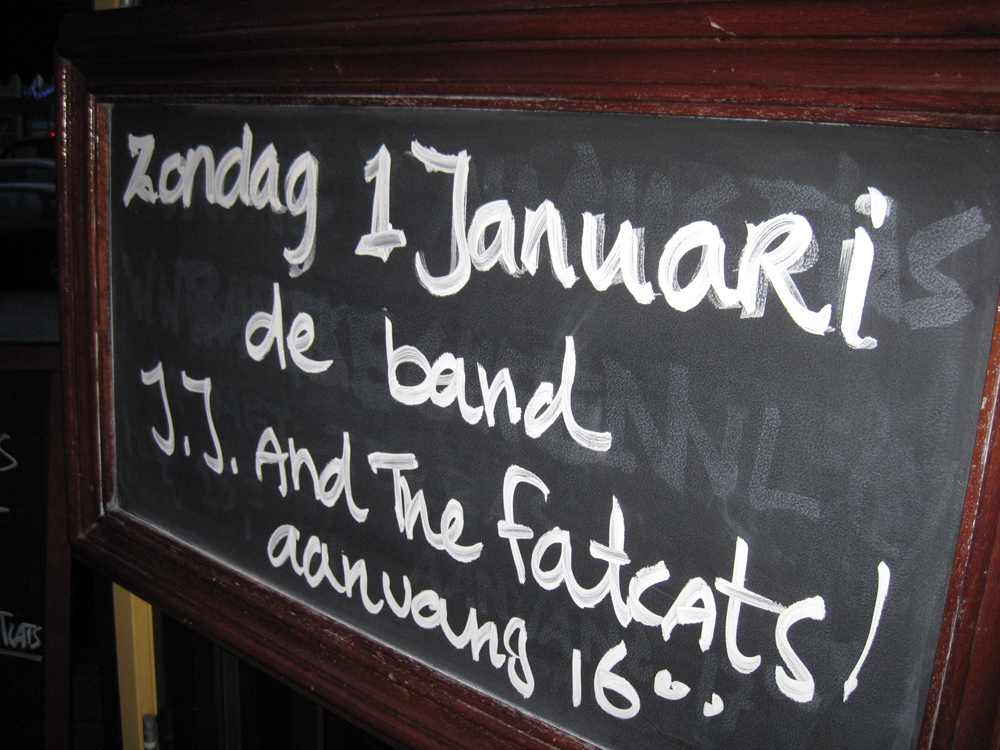 Zondag 1 Januari
de band
J.J. And The fatcats!
aanvang 16 00.